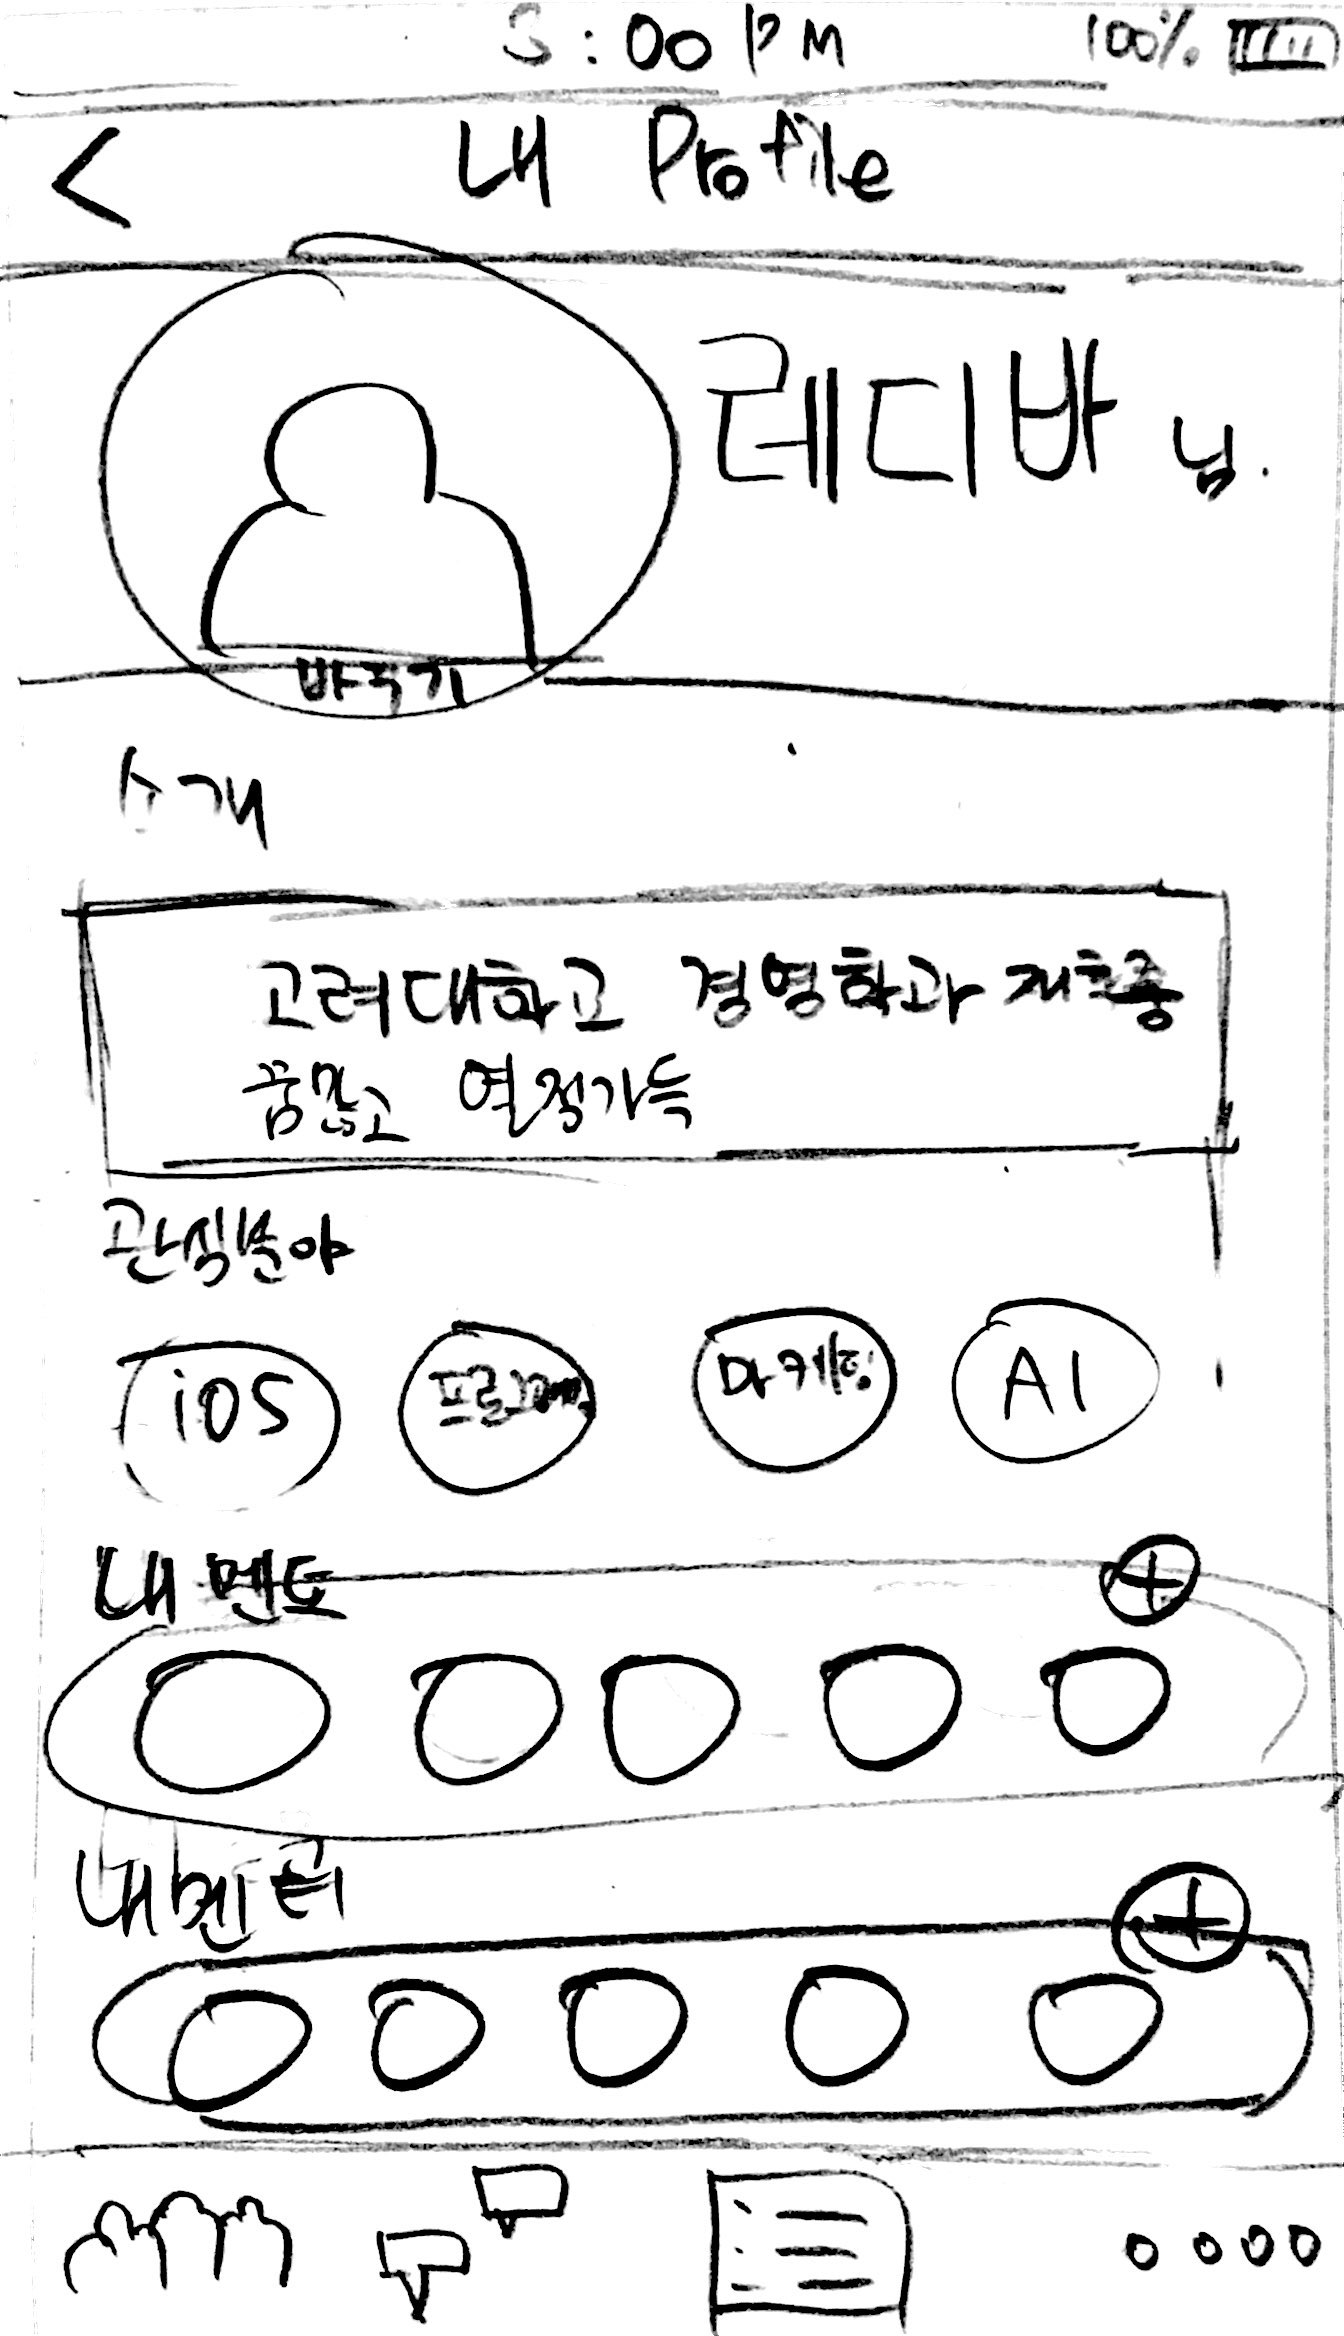 5:00 PM 100%
< 내 Profile
레디바 님.
바꾸기
소개
고려대학교 경영학과 재학중
꿈많고 열정가득
관심분야
iOS 마케팅 AI
내 멘토
내 멘티